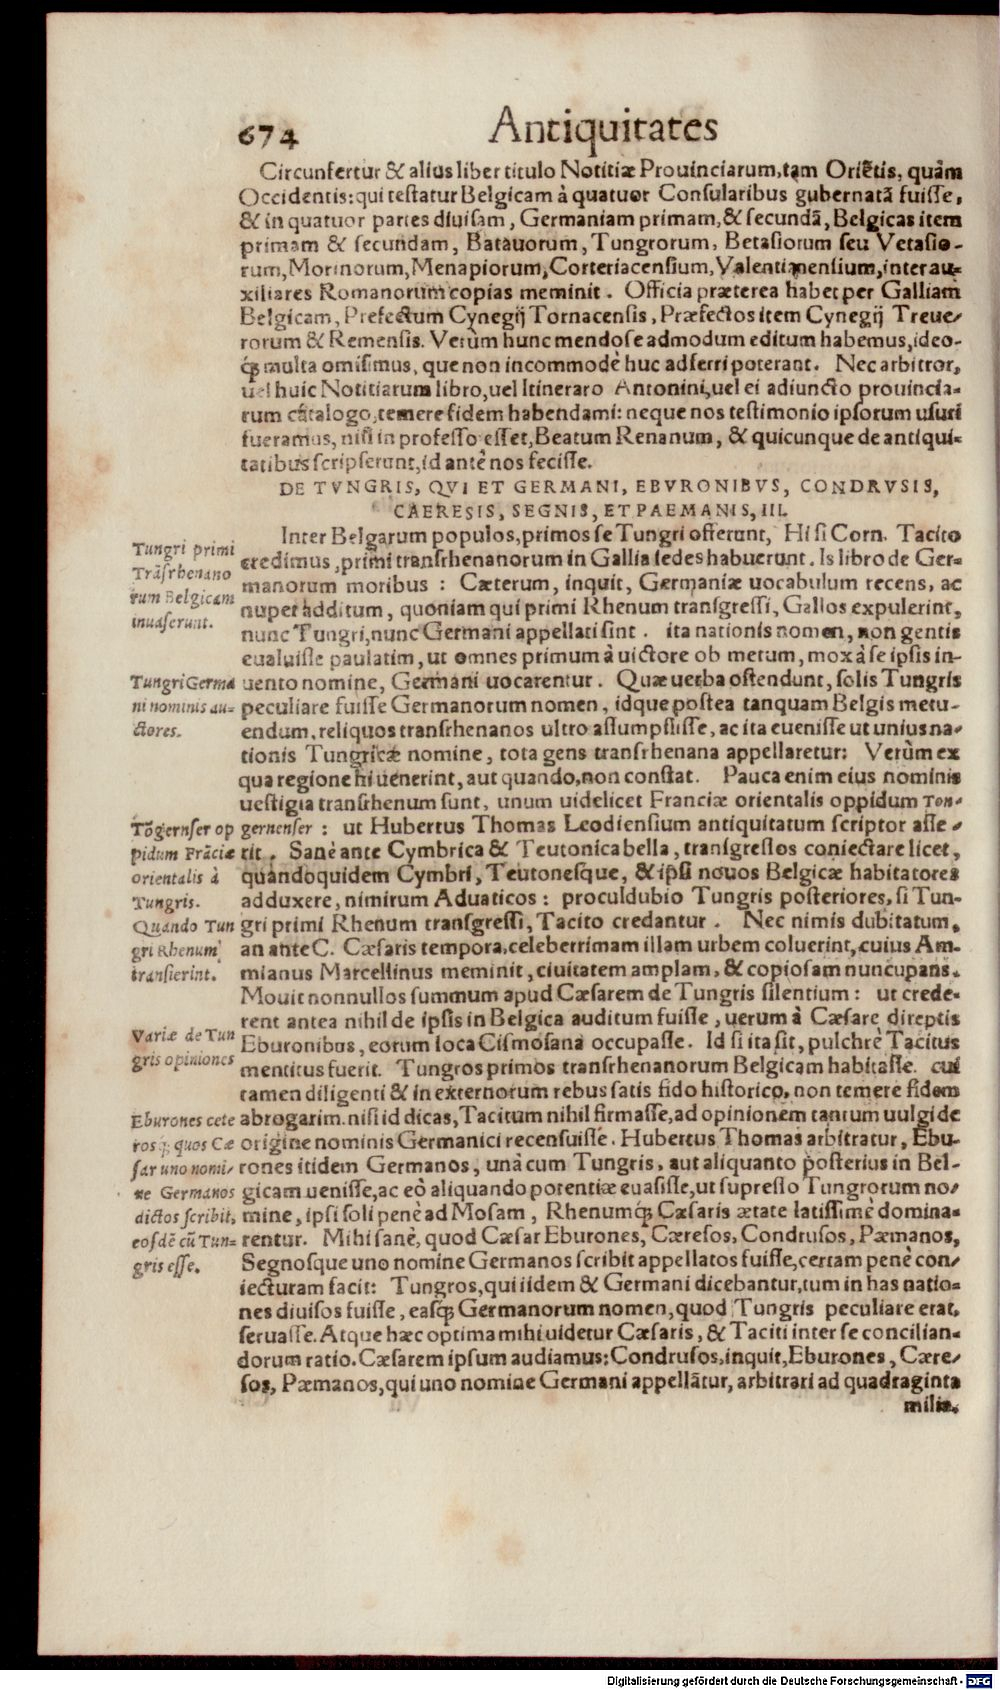 674 Antiquitates
Circunfertur & alius liber titulo Notitiæ Prouinciarum, tam Oriẽtis, quàm
Occidentis: qui testatur Belgicam à quatuor Consularibus gubernatã fuisse,
& in quatuor partes diuisam, Germaniam primam, & secundã, Belgicas item
primam & secundam, Batauorum, Tungrorum, Betasiorum seu Vetasio-
rum, Morinorum, Menapiorum, Corteriacensium, Valentianensium, inter au-
xiliares Romanorum copias meminit. Officia præterea habet per Galliam
Belgicam, Prefectum Cynegij Tornacensis, Præfectos item Cynegij Treue-
rorum & Remensis. Verùm hunc mendose admodum editum habemus, ideo-
q́ʒ multa omisimus, que non incommodè huc adferri poterant. Nec arbitror,
uel huic Notitiarum libro, uel Itineraro Antonini, uel ei adiuncto prouincia-
rum catalogo, temere fidem habendam: neque nos testimonio ipsorum usuri
fueramus, nisi in professo esset, Beatum Renanum, & quicunque de antiqui-
tatibus scripserunt, id antè nos fecisse.
DE TVNGRIS, QVI ET GERMANI, EBVRONIBVS, CONDRVSIS,
CAERESIS, SEGNIS, ET PAEMANIS, III.
Inter Belgarum populos, primos se Tungri offerunt, Hi si Corn. Tacito
credimus, primi transrhenanorum in Gallia sedes habuerunt. Is libro de Ger-
manorum moribus: Cæterum, inquit, Germaniæ uocabulum recens, ac
nuper additum, quoniam qui primi Rhenum transgressi, Gallos expulerint,
nunc Tungri, nunc Germani appellati sint. ita nationis nomen, non gentis
eualuisse paulatim, ut omnes primum à uictore ob metum, mox à se ipsis in-
uento nomine, Germani uocarentur. Quæ uerba ostendunt, solis Tungris
peculiare fuisse Germanorum nomen, idque postea tanquam Belgis metu-
endum, reliquos transrhenanos ultro assumpsisse, ac ita euenisse ut unius na-
tionis Tungricæ nomine, tota gens transrhenana appellaretur: Verùm ex
qua regione hi uenerint, aut quando, non constat. Pauca enim eius nominis
uestigia transrhenum sunt, unum uidelicet Franciæ orientalis oppidum Ton-
gernenser: ut Hubertus Thomas Leodiensium antiquitatum scriptor asse-
rit. Sanè ante Cymbrica & Teutonica bella, transgressos coniectare licet,
quandoquidem Cymbri, Teutonesque, & ipsi nouos Belgicæ habitatores
adduxere, nimirum Aduaticos: proculdubio Tungris posteriores, si Tun-
gri primi Rhenum transgressi, Tacito credantur. Nec nimis dubitatum,
an ante C. Cæsaris tempora, celeberrimam illam urbem coluerint, cuius Am-
mianus Marcellinus meminit, ciuitatem amplam, & copiosam nuncupans.
Mouit nonnullos summum apud Cæsarem de Tungris silentium: ut crede-
rent antea nihil de ipsis in Belgica auditum fuisse, uerum à Cæsare direptis
Eburonibus, eorum loca Cismosana occupasse. Id si ita sit, pulchrè Tacitus
mentitus fuerit. Tungros primos transrhenanorum Belgicam habitasse. cui
tamen diligenti & in externorum rebus satis fido historico, non temere fidem
abrogarim. nisi id dicas, Tacitum nihil firmasse, ad opinionem tantum uulgi de
origine nominis Germanici recensuisse. Hubertus Thomas arbitratur, Ebu-
rones itidem Germanos, unà cum Tungris, aut aliquanto posterius in Bel-
gicam uenisse, ac eò aliquando potentiæ euasisse, ut supresso Tungrorum no-
mine, ipsi soli penè ad Mosam, Rhenumq́ʒ Cæsaris ætate latissimè domina-
rentur. Mihi sanè, quod Cæsar Eburones, Cæresos, Condrusos, Pæmanos,
Segnosque uno nomine Germanos scribit appellatos fuisse, certam penè con-
iecturam facit: Tungros, qui iidem & Germani dicebantur, tum in has natio-
nes diuisos fuisse, easq́ʒ Germanorum nomen, quod Tungris peculiare erat,
seruasse. Atque hæc optima mihi uidetur Cæsaris, & Taciti inter se concilian-
dorum ratio. Cæsarem ipsum audiamus: Condrusos, inquit, Eburones, Cære-
sos, Pæmanos, qui uno nomine Germani appellãtur, arbitrari ad quadraginta
milia.
Tungri primi
Trãsrhenano
rum Belgicam
inuaserunt.
Tungri Germa
ni nominis au-
ctores.
Tõgernser op
pidum Frãciæ
orientalis à
Tungris.
Quando Tun
gri Rhenum
transierint.
Variæ de Tun
gris opiniones
Eburones cete
rosq́ʒ quos Cæ
sar uno nomi-
ne Germanos
dictos scribit,
eosdẽ cũ Tun-
gris esse.
Digitalisierung gefördert durch die Deutsche Forschungsgemeinschaft - DFG